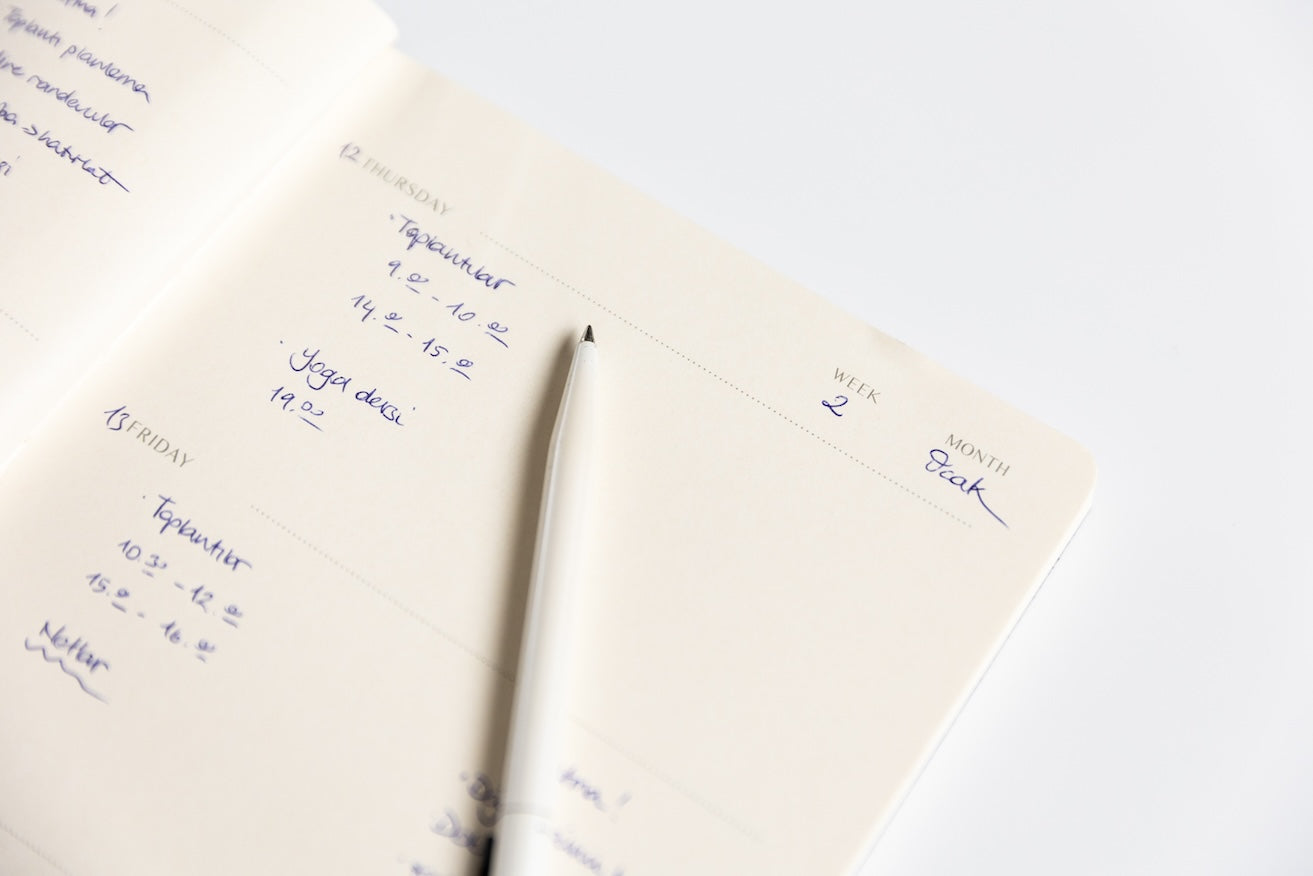 Toplantı planlama
randevular
→hatırlat
12 THURSDAY
· Toplantılar
9.00 - 10.00
14.00 - 15.00
· Yoga dersi
19.00
WEEK
2
MONTH
Ocak
13 FRIDAY
· Toplantılar
10.30 - 12.00
15.00 - 16.00
Notlar